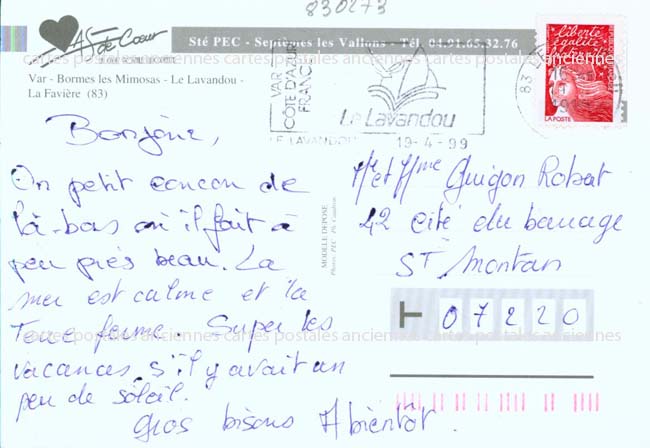 830273
AS de Cœur
Sté PEC - Septèmes les Vallons - Tél. 04.91.65.32.76
Var - Bormes les Mimosas - Le Lavandou -
La Favière (83)
VAR
CÔTE D'AZUR
FRANCE
Le Lavandou
LE LAVANDOU 19-4-99
83
Liberté
égalité
LA POSTE
cartes postales anciennes cartes postales anciennes cartes postales
Bonjour,
Un petit coucou de
là-bas où il fait à
peu près beau. La
mer est calme et la
Terre ferme. Super les
vacances, s'il y avait un
peu de soleil.
Gros bisous A bientôt.
MODELE DEPOSE
Mr et Mme Guigon Robert
42 cité du barrage
ST Montan
07220
cartes postales anciennes cartes postales anciennes cartes postales